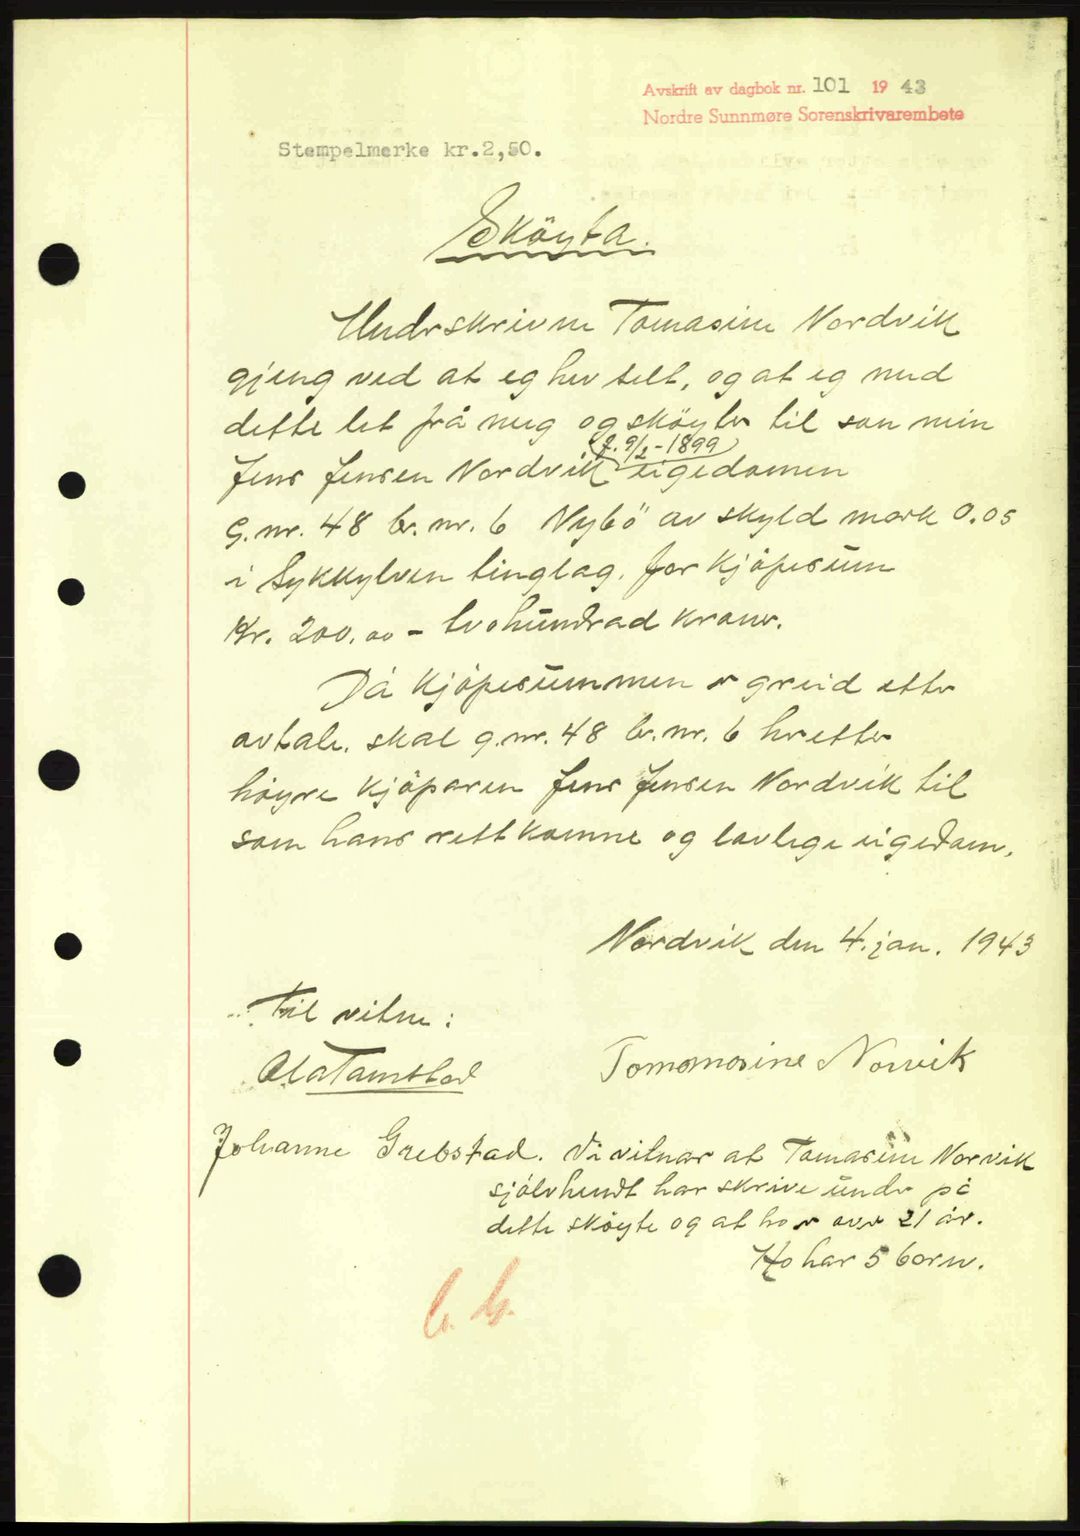 Avskrift av dagbok nr. 101 1943
Nordre Sunnmøre Sorenskrivarembete
Stempelmerke kr.2,50.
Sköyta.
Undrskrivne Tomasine Nordvik
gjeng ved at eg hev selt, og at eg med
dette let frå meg og sköyter til son min
(f. 9/2-1899)
Jens Jensen Nordvik eigedomen
G.nr. 48 br.nr. 6 Nybö av skyld mark 0.05
i Sykkylven tinglag. for kjöpesum
Kr. 200.00 - tvohundrad kroner.
Då kjöpesummen er greid etter
avtale. skal g.nr. 48 br.nr. 6 heretter
höyre kjöparen Jens Jensen Nordvik til
som hans rettkomne og lovlege eigedom.
Nordvik den 4. jan. 1943
Til vitne:
Ola Tamstad
Tomomasine Norvik
Johanne Grebstad. Vi vitnar at Tomasine Norvik
sjölvhendt har skrive under på
dette sköyte og at ho er over 21 år.
Ho har 5 born.
b. b.